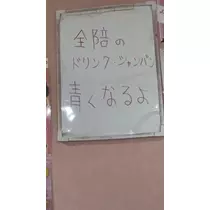 全陪の
ドリンク シャンパン
青くなるよ